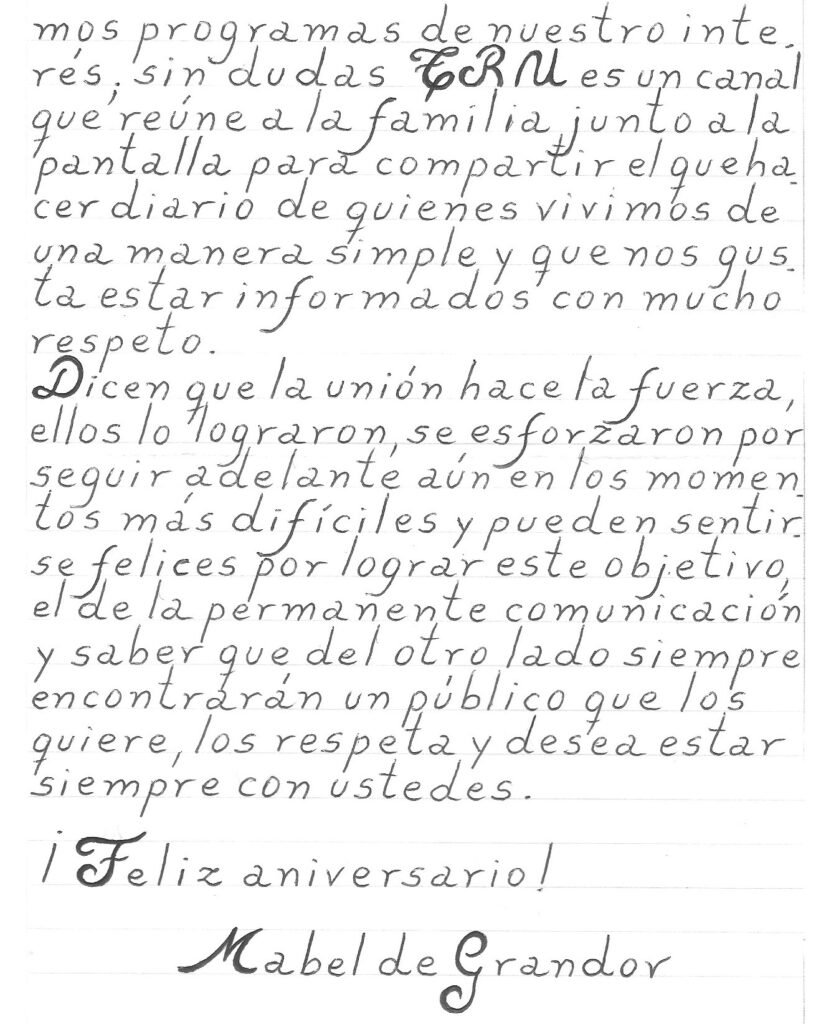 mos programas de nuestro inte_
rés, sin dudas TRU es un canal
que reúne a la familia junto a la
pantalla para compartir el queha_
cer diario de quienes vivimos de
una manera simple y que nos gus_
ta estar informados con mucho
respeto.
Dicen que la unión hace la fuerza,
ellos lo lograron, se esforzaron por
seguir adelante aún en los momen_
tos más difíciles y pueden sentir_
se felices por lograr este objetivo,
el de la permanente comunicación
y saber que del otro lado siempre
encontrarán un público que los
quiere, los respeta y desea estar
siempre con ustedes.
¡Feliz aniversario!
Mabel de Grandor